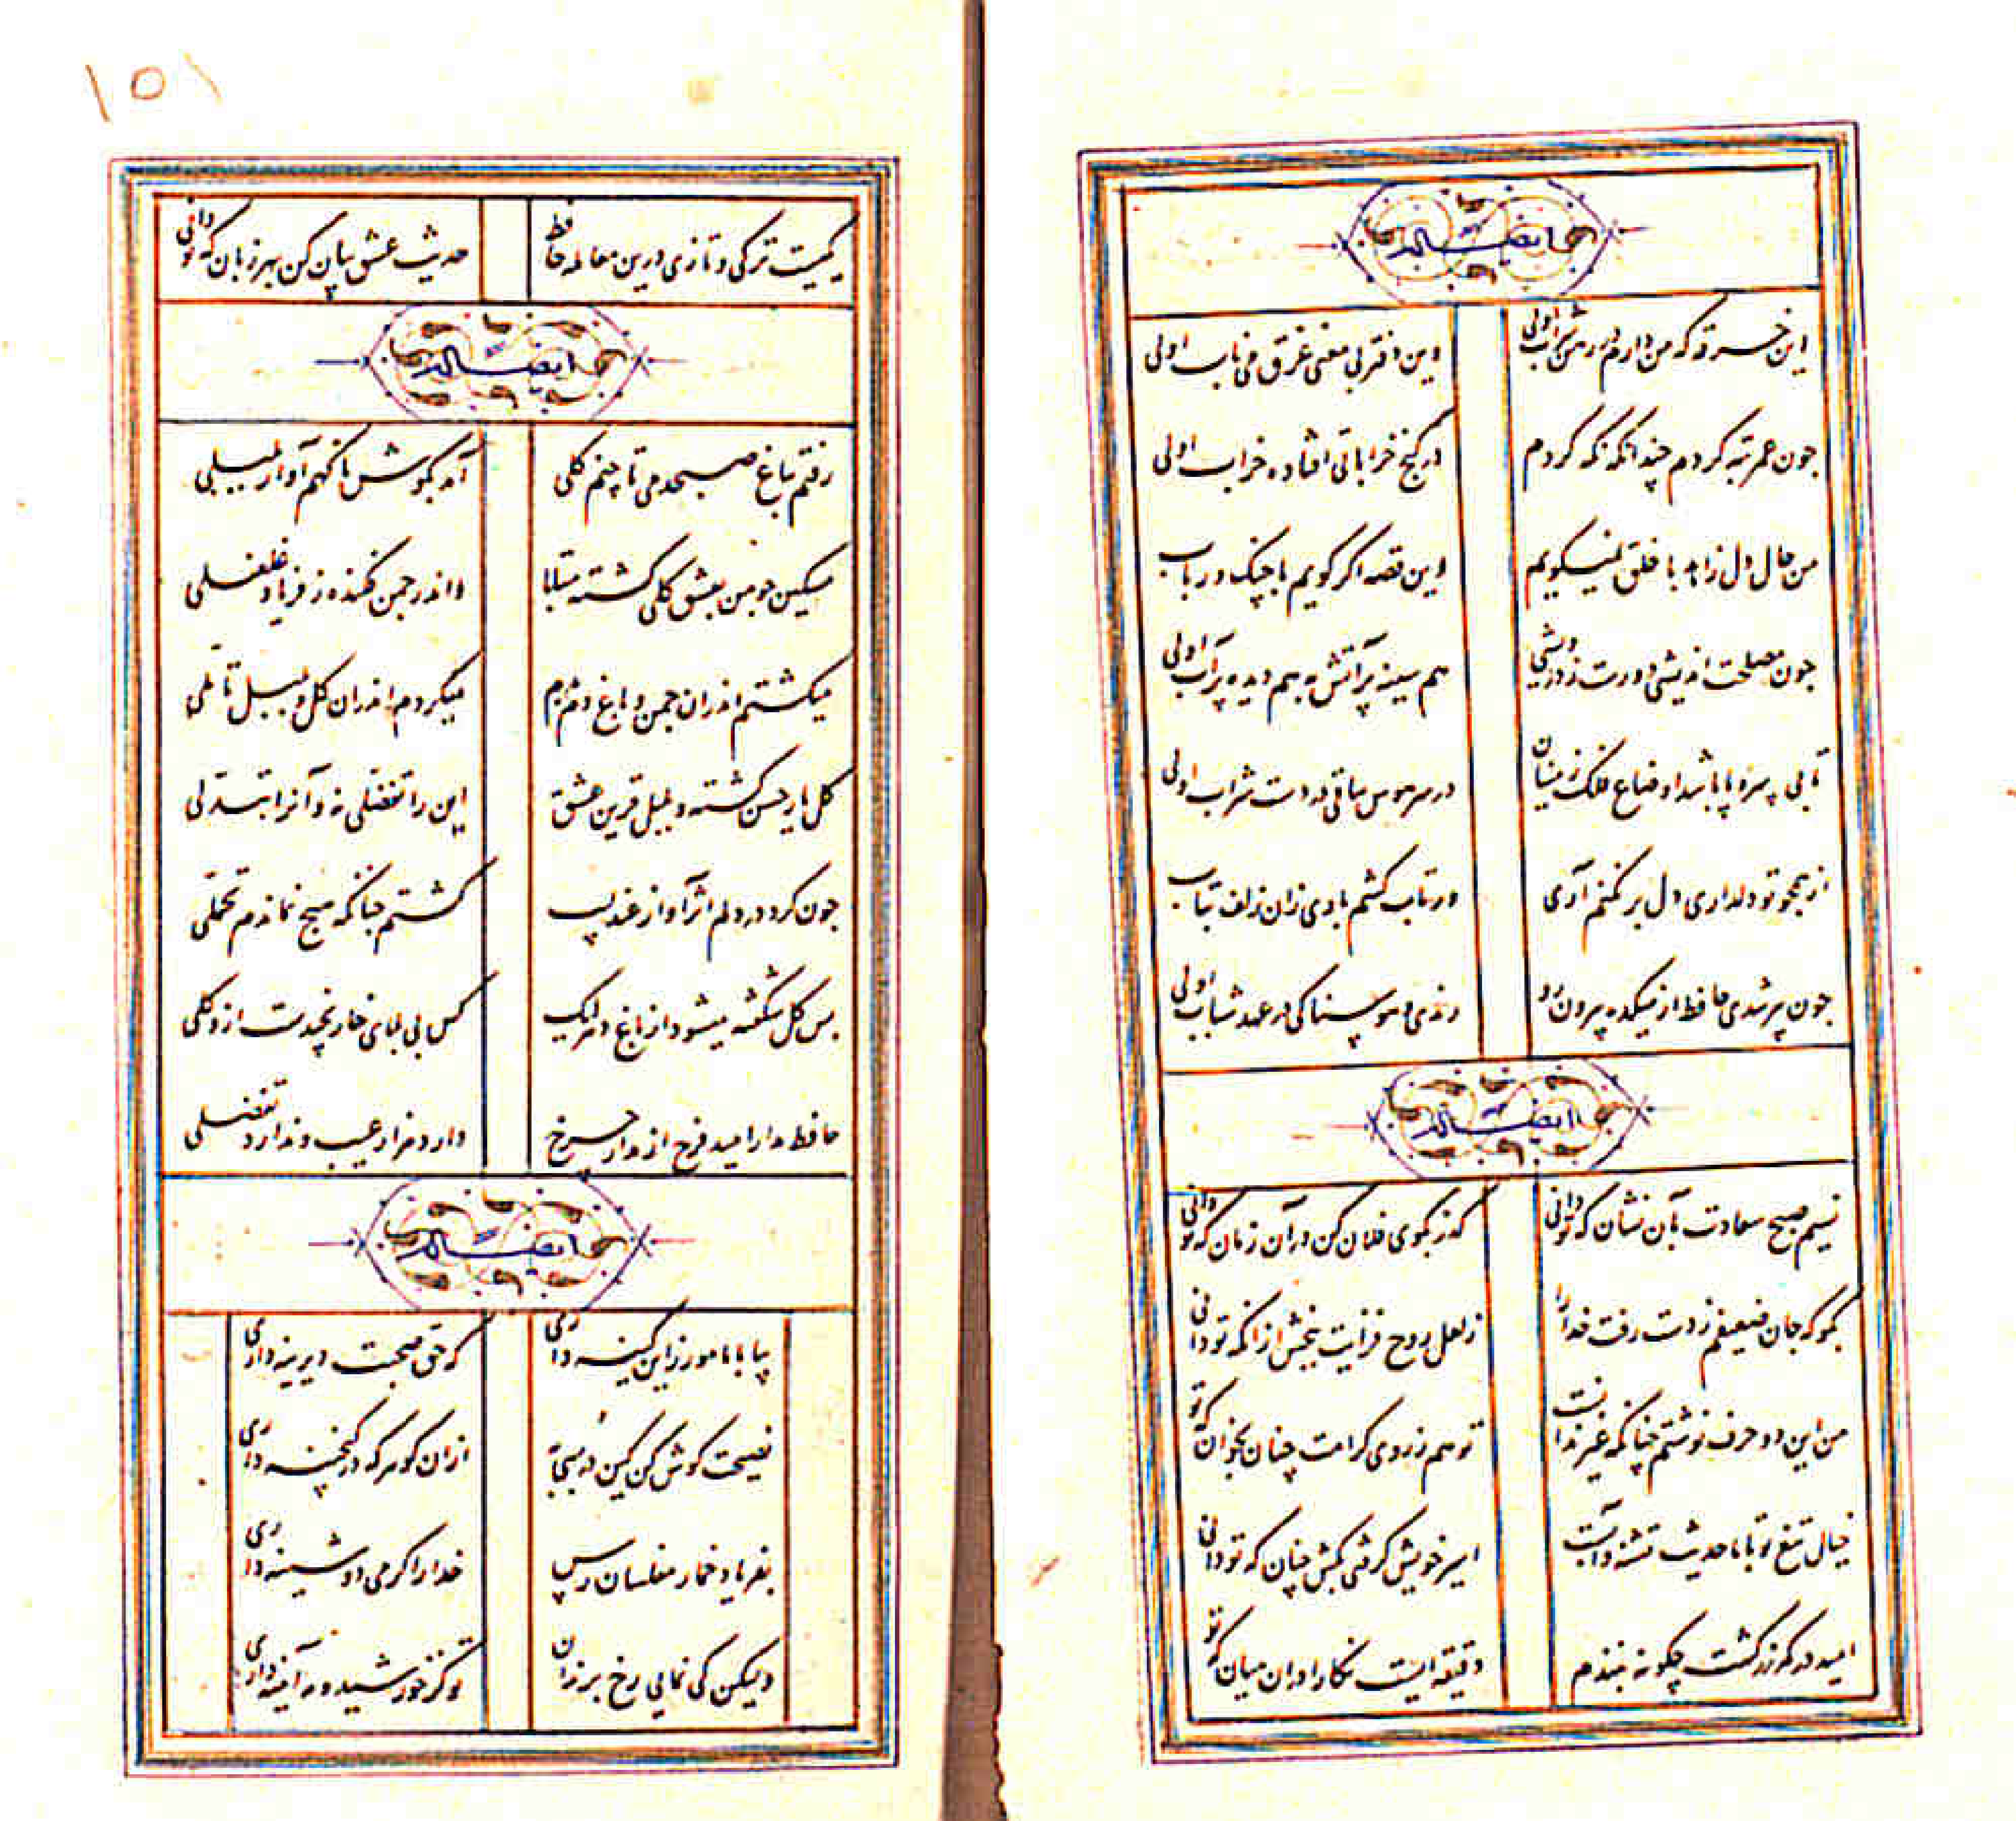 ایضاله
این خرقه که من دارم در رهن شراب اولی
وین دفتر بی معنی غرق می ناب اولی
جون عمر تبه کردم چندانکه نکه کردم
در کنج خراباتی افتاده خراب اولی
من حال دل زاهد با خلق نمیکویم
این قصه اکر کویم با چنک و رباب
جون مصلحت اندیشی دورست ز درویشی
هم سینه پر آتش به هم دیده پر آب اولی
تا بی سر و پا باشد اوضاع فلک زینسان
در سر هوس ساقی در دست شراب اولی
از همجو تو دلداری دل بر نکنم آری
ور تاب کشم باری زان زلف بتاب
جون پیر شدی حافظ از میکده بیرون رو
رندی و هوسناکی در عهد شباب اولی
ایضاله
نسیم صبح سعادت بآن نشان که تو دانی
کذر بکوی فلان کن در آن زمان که تو دانی
بکو که جان ضعیفم ز دست رفت خدا را
ز لعل روح فزایت ببخش ازانکه تو دانی
من این دو حرف نوشتم چنانکه غیر ندانست
تو هم ز روی کرامت چنان بخوان که تو
خیال تیغ تو با ما حدیث تشنه و آبست
اسیر خویش کرفتی بکش چنان که تو دانی
امید در کمر زرکشت چکونه نبندم
دقیقه ایست نکارا دران میان که تو
۱۵۱
یکیست ترکی و تازی درین معامله حافظ
حدیث عشق بیان کن بهر زبان که تو دانی
ایضاله
رفتم بباغ صبحدمی تا چنم کلی
آمد بکوش ناکهم آواز بلبلی
مسکین جو من بعشق کلی کشته مبتلا
واندر جمن فکنده ز فریاد غلغلی
میکشتم اندران جمن و باغ دم بدم
میکردم اندران کل و بلبل تأملی
کل یار حسن کشته و بلبل قرین عشق
این را تفضلی نه و آنرا تبدلی
جون کرد در دلم اثر آواز عندلیب
کشتم جنانکه هیج نماندم تحملی
بس کل شکفته میشود از باغ دهر لیک
کس بی بلای خار نچیدست ازو کلی
حافظ مدار امید فرح از مدار جرخ
دارد هزار عیب و ندارد تفضلی
ایضاله
بیا با ما مورز این کینه داری
که حق صحبت دیرینه داری
نصیحت کوش کن کین در بسی به
ازان کوهر که در کنجینه داری
بفریاد خمار مفلسان رس
خدا را کر می دوشینه داری
ولیکن کی نمایی رخ برندان
تو کز خورشید و مه آیینه داری